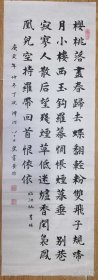 櫻桃落盡春歸去蝶翻輕粉雙飛子規啼
月小樓西玉鈎羅幕惆悵暮煙垂 別巷
寂寥人散後望殘煙草低迷爐香閒裊
鳳凰兒空持羅帶回首恨依依